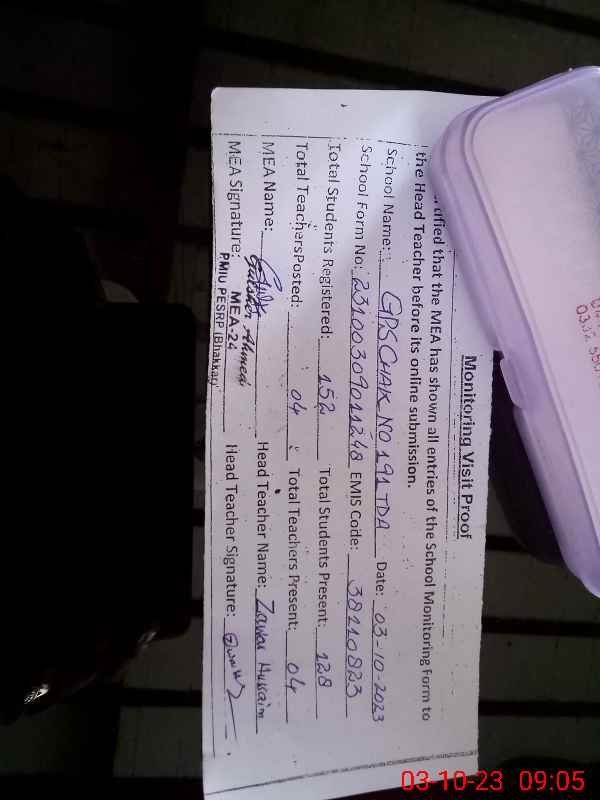 Monitoring Visit Proof
ified that the MEA has shown all entries of the School Monitoring Form to
the Head Teacher before its online submission.
School Name: GPS CHAK NO 191 TDA Date: 03-10-2023
School Form No: 23100309011248 EMIS Code: 38110823
Total Students Registered: 152 Total Students Present: 128
Total TeachersPosted: 04 Total Teachers Present: 04
MEA Name: Gulsher Ahmed Head Teacher Name: Zawar Hussain
MEA Signature: Head Teacher Signature:
MEA-24
PMIU PESRP (Bhakkar)
03-10-23 09:05